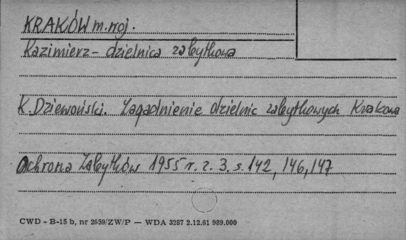 KRAKÓW m. woj.
Kazimierz - dzielnica zabytkowa
K. Dziewoński. Zagadnienie dzielnic zabytkowych Krakowa
Ochrona Zabytków 1955 r. z. 3. s. 142, 146, 147
CWD - B-15 b, nr 2659/ZW/P — WDA 3287 2.12.61 989.000